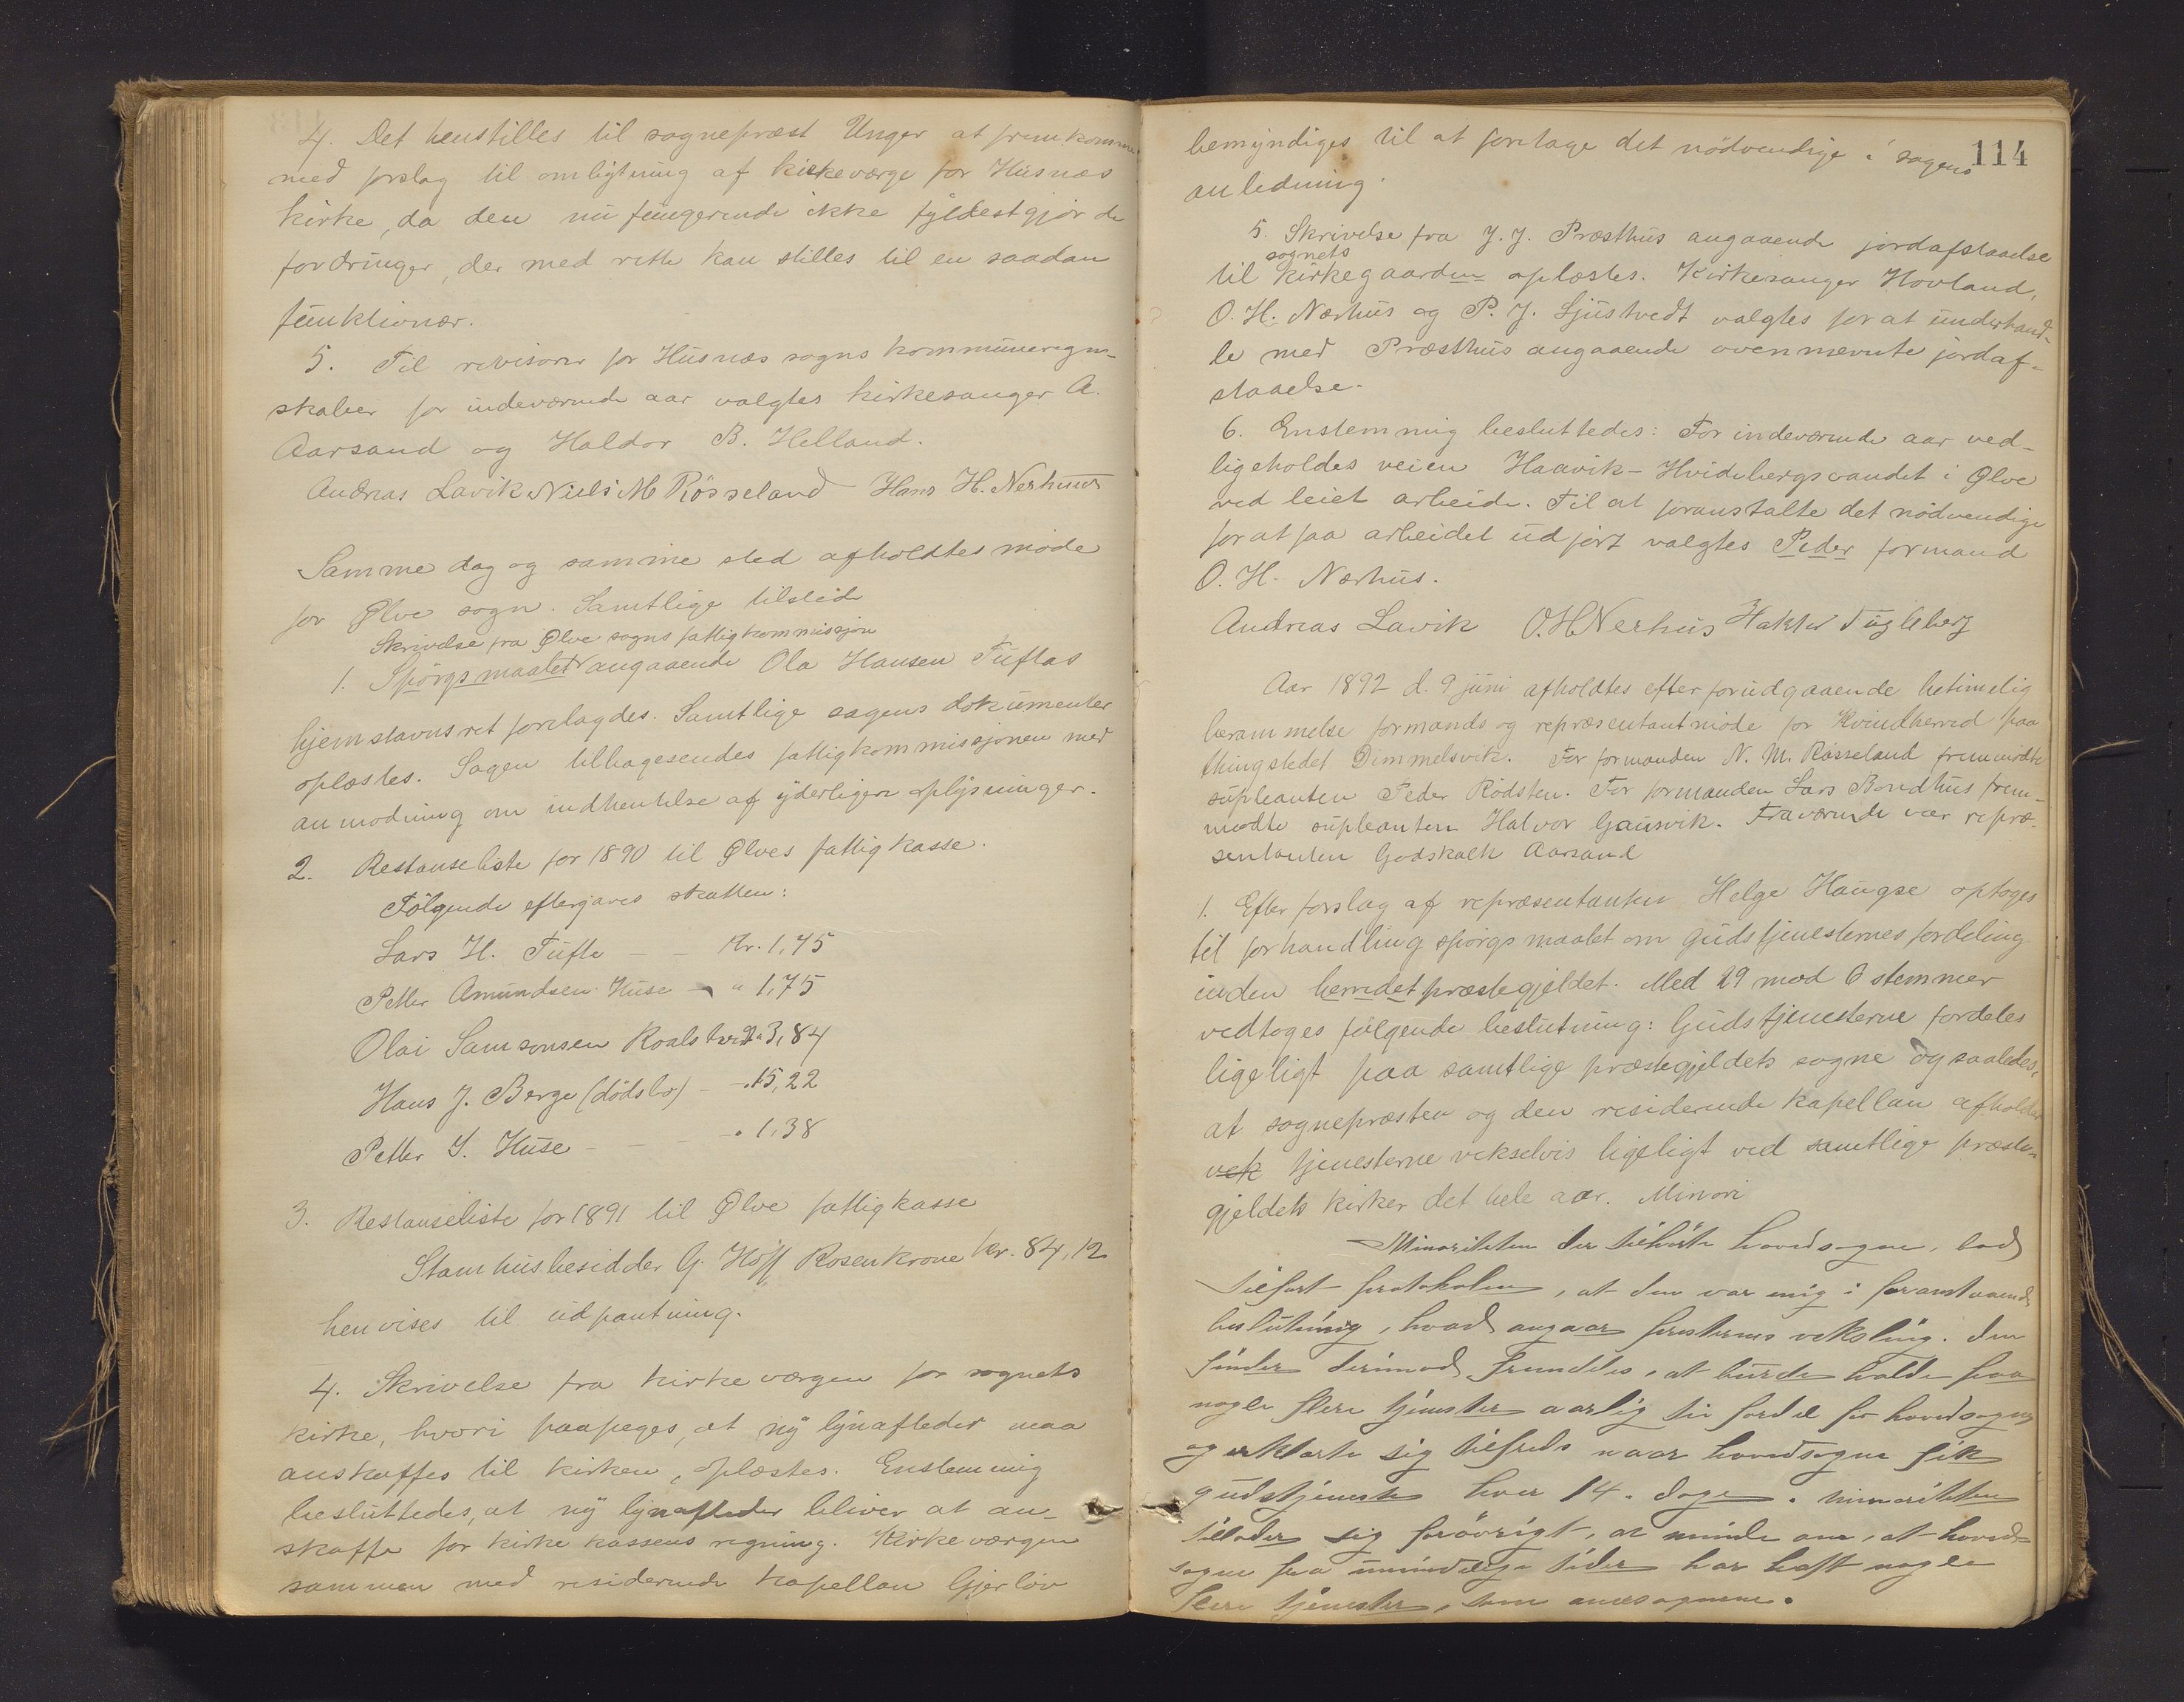 4. Det henstilles til sognepræst Unger at fremkomme
med forslag til omligtning af kirkeværge for Husnæs
kirke, da den nu fungerende ikke fyldestgjør de
fordringer, der med rette kan stilles til en saadan
funktionær.
5. Til revisorer for Husnæs sogns kommuneregn-
skaber for indeværende aar valgtes kirkesanger A.
Aarsand og Haldor B. Helland.
Andreas Lavik Niels M Rösseland Hans H. Nerhuus
Samme dag og samme sted afholdtes møde
for Ølve sogn. Samtlige tilstede
Skrivelse fra Ølve sogns fattigkommissjon
1. Spörgsmaalet angaaende Ola Hansen Tuftas
hjemstavnsret forelagdes. Samtlige sagens dokumenter
oplæstes. Sagen tilbagesendes fattigkommissjonen med
anmodning om indhentelse af yderligere oplysninger.
2. Restanseliste for 1890 til Ølves fattigkasse.
Følgende eftergaves skatten:
Lars H. Tufte - - Kr. 1,75
Petter Amundsen Huse - " 1,75
Olai Samsonsen Roalstvedt " 3,84
Hans J. Berge (dödsbo) - - " 15,22
Petter S. Huse - - - - " 1,38
3. Restanseliste for 1891 til Ølve fattigkasse
Stamhusbesidder G. Hoff Rosenkrone kr. 84,12
henvises til udpantning.
4. Skrivelse fra kirkeværgen for sognets
kirke, hvori paapeges, at ny lynafleder maa
anskaffes til kirken, oplæstes. Enstemmig
besluttedes, at ny lynafleder bliver at an-
skaffe for kirkekassens regning. Kirkeværgen
sammen med residerende kapellan Gjerløw
114
bemyndiges til at foretage det nödvendige i sagens
anledning.
5. Skrivelse fra J. J. Præsthus angaaende jordafstaaelse
sognets
til kirkegaarden oplæstes. Kirkesanger Hovland,
O. H. Nærhus og P. J. Ljustvedt valgtes for at underhand-
le med Præsthus angaaende ovennævnte jordaf-
staaelse.
6. Enstemmig besluttedes: For indeværende aar ved-
ligeholdes veien Haavik - Hvidebergsvandet i Ølve
ved leiet arbeide. Til at foranstalte det nödvendige
for at faa arbeidet udført valgtes Peder formand
O. H. Nærhus.
Andreas Lavik O. H Nerhus Haktor Fugleberg
Aar 1892 d. 9 juni afholdtes efter forudgaaende betimelig
berammelse formands og repræsentantmøde for Kvindherred paa
thingstedet Dimmelsvik. For formanden N. M. Røsseland fremmødte
supleanten Peder Rødsten. For formanden Lars Bondhus frem-
mødte supleanten Halvor Gausvik. Fraværende var repræ-
sentanten Godskalk Aarsand
1. Efter forslag af repræsentanten Helge Haugse optoges
til forhandling spörgsmaalet om gudstjenesternes fordeling
inden herredet præstegjeldet. Med 29 mod 6 stemmer
vedtoges følgende beslutning: Gudstjenesterne fordeles
ligeligt paa samtlige præstegjeldets sogne og saaledes,
at sognepræsten og den residerende kapellan afholder
vek tjenesterne vekselvis ligeligt ved samtlige præste-
gjeldets kirker det hele aar. Minori
Minoriteten der tilhörte hovedsogne, bad
tilført protokolen, at den var enig i foranstaaende
beslutning, hvad angaar præsternes veksling. Den
finder derimod fremdeles, at burde holde paa
nogle flere tjenester aarlig til fordel for hovedsogne
og erklærte sig tilfreds naar hovedsogne fik
gudstjeneste hver 14. dage. Minoriteten
tillader sig forövrigt, at minde om, at hoved-
sogne fra umindelige tider har haft nogle
flere tjenester, som annexsognene.